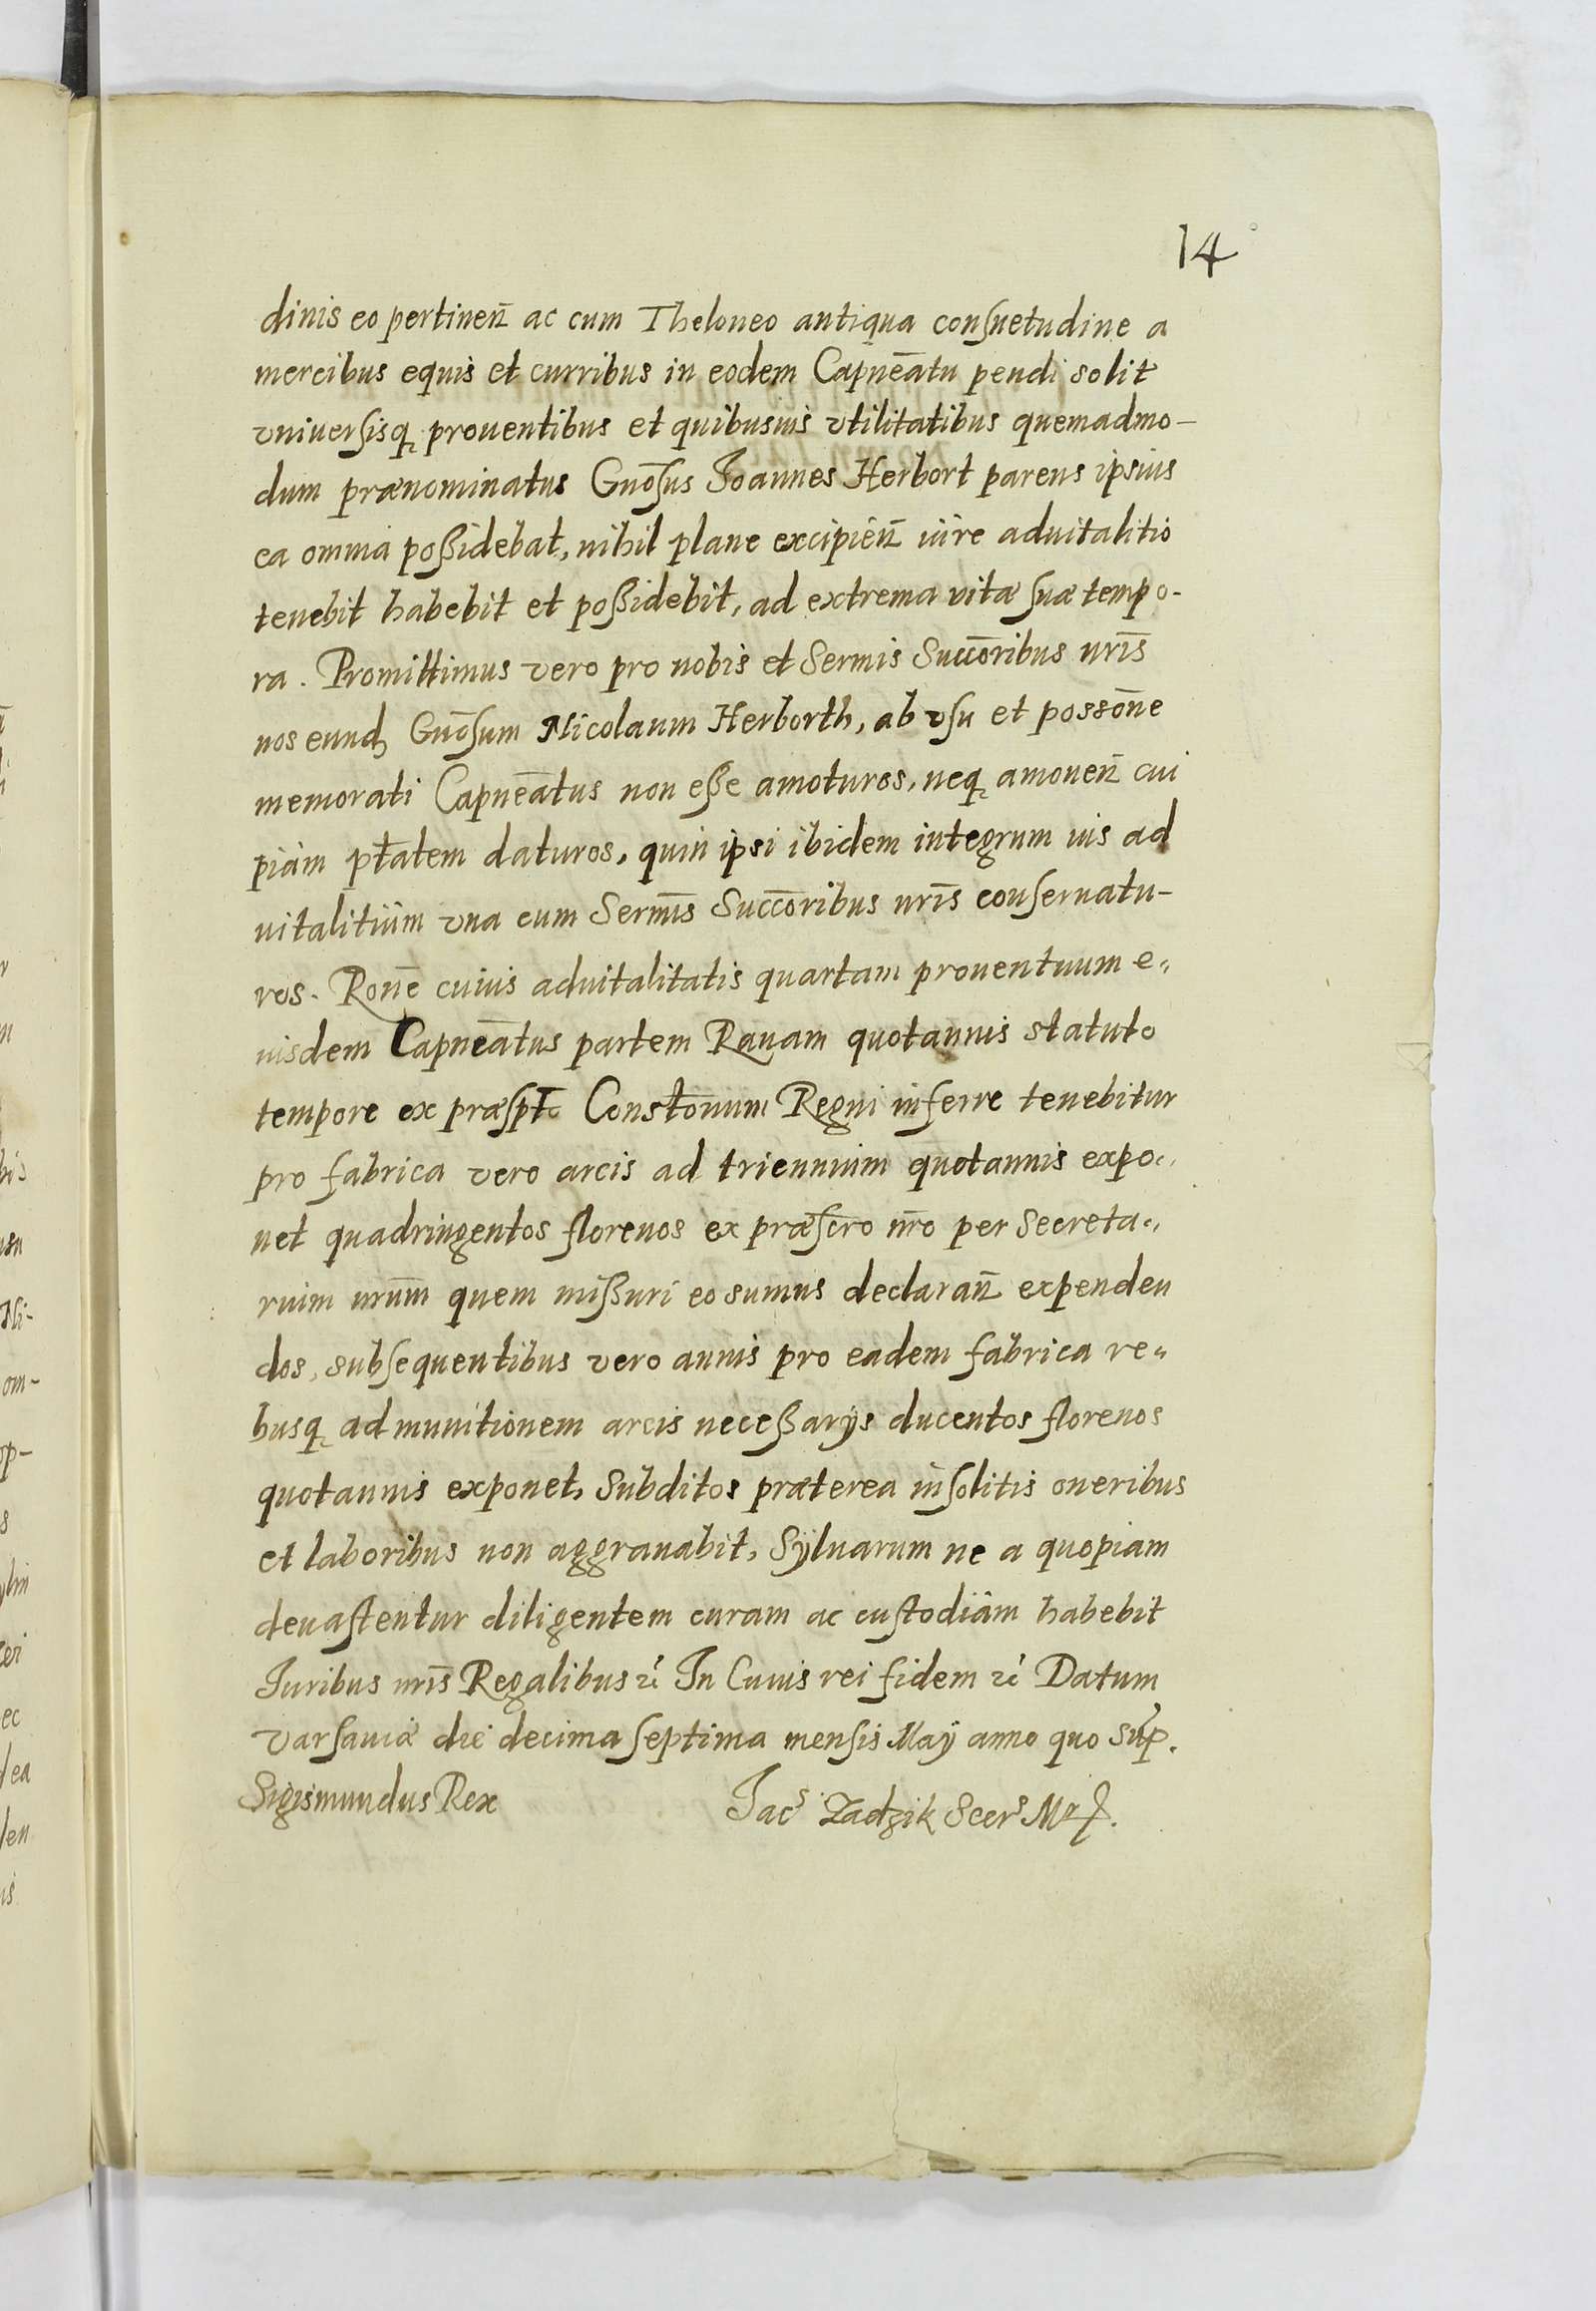 14
dinis eo pertineñ ac cum Theloneo antiqua consuetudine a
mercibus equis et curribus in eodem Capneātu pendi solit
vniversisq prouentibus et quibusuis vtilitatibus quemadmo-
dum prænominatus Gnōsus Joannes Herbort parens ipsius
ea omnia poßidebat, nihil plane excipień iure aduitalitio
tenebit habebit et poßidebit, ad extrema vitæ suæ tempo-
ra. Promittimus vero pro nobis et Sermis Succōribus nrīs
nos eund Gnōsum Nicolaum Herborth, ab vsu et possōne
memorati Capneātus non eße amoturos, neq amoueñ cui
piam ptatem daturos, quin ipsi ibidem integrum ius ad
uitalitium vna cum Sermīs Succōribus nrīs conseruatu-
ros. Ronē cuius aduitalitatis quartam prouentuum e„
iusdem Capneātus partem Rauam quotannis statuto
tempore ex præspto Constōnum Regni inferre tenebitur
pro fabrica vero arcis ad triennium quotannis expo„
net quadringentos florenos ex præscro nrō per Secreta„
rium nrūm quem mißuri eo sumus declarañ expenden
dos, subsequentibus vero annis pro eadem fabrica re„
busq ad munitionem arcis neceßarÿs ducentos florenos
quotannis exponet, Subditos præterea insolitis oneribus
et laboribus non aggrauabit, Syluarum ne a quopiam
deuastentur diligentem curam ac custodiam habebit
Juribus nrīs Regalibus ꝛc In Cuius rei fidem ꝛc Datum
Varsauiæ die decima septima mensis Maÿ anno quo Sup.
Sigismundus Rex Jacs Zadzik Secrs